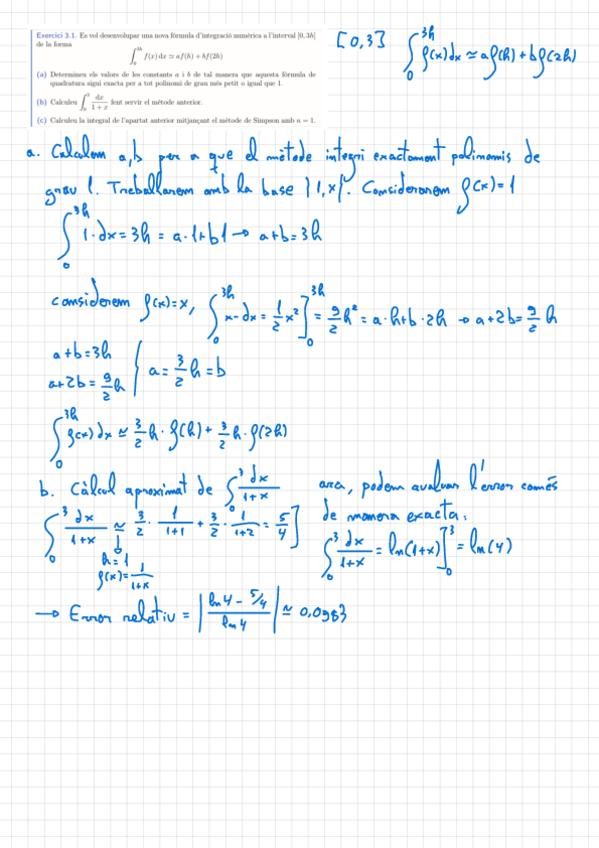 Exercici 3.1. Es vol desenvolupar una nova fórmula d'integració numèrica a l'interval [0, 3h]
de la forma
∫₀³ʰ f(x) dx ≃ af(h) + bf(2h)
(a) Determineu els valors de les constants a i b de tal manera que aquesta fórmula de
quadratura sigui exacta per a tot polinomi de grau més petit o igual que 1.
(b) Calculeu ∫₀³ dx/(1+x) fent servir el mètode anterior.
(c) Calculeu la integral de l'apartat anterior mitjançant el mètode de Simpson amb n = 1.
[0,3] ∫₀³ʰ f(x)dx ≃ a f(h) + b f(2h)
a. Calculem a,b per a que el mètode integri exactament polinomis de
grau 1. Treballarem amb la base {1,x}. Considerem f(x)=1
∫₀³ʰ 1·dx = 3h = a·1+b·1 → a+b=3h
considerem f(x)=x, ∫₀³ʰ x·dx = 1/2 x²]₀³ʰ = 9/2 h² = a·h+b·2h → a+2b = 9/2 h
a+b=3h
a+2b = 9/2 h } a = 3/2 h = b
∫₀³ʰ f(x)dx ≃ 3/2 h · f(h) + 3/2 h · f(2h)
b. Càlcul aproximat de ∫₀³ dx/(1+x)
∫₀³ dx/(1+x) ≃ 3/2 · 1/(1+1) + 3/2 · 1/(1+2) = 5/4]
↓
h=1
f(x)=1/(1+x)
ara, podem avaluar l'error comès
de manera exacta:
∫₀³ dx/(1+x) = ln(1+x)]₀³ = ln(4)
→ Error relatiu = |(ln4 - 5/4)/ln4| ≃ 0,0983